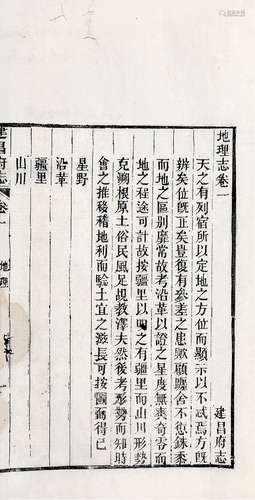 地理志卷一
建昌府志
天之有列宿所以定地之方位而顯示以不忒焉方旣
辨矣位旣正矣豈復有參差之患歟顧鑿舍不愆銖黍
而地之區別靡常故考沿革以證之星度無爽奇零而
地之程途可計故按疆里以 之有疆里而山川形勢
充 根原土俗民風足覘教澤夫然後考形勢而知時
會之推移稽地利而驗土宜之滋長可按圖而得已
星野
沿革
疆里
山川
建昌府志
卷一
地理
一